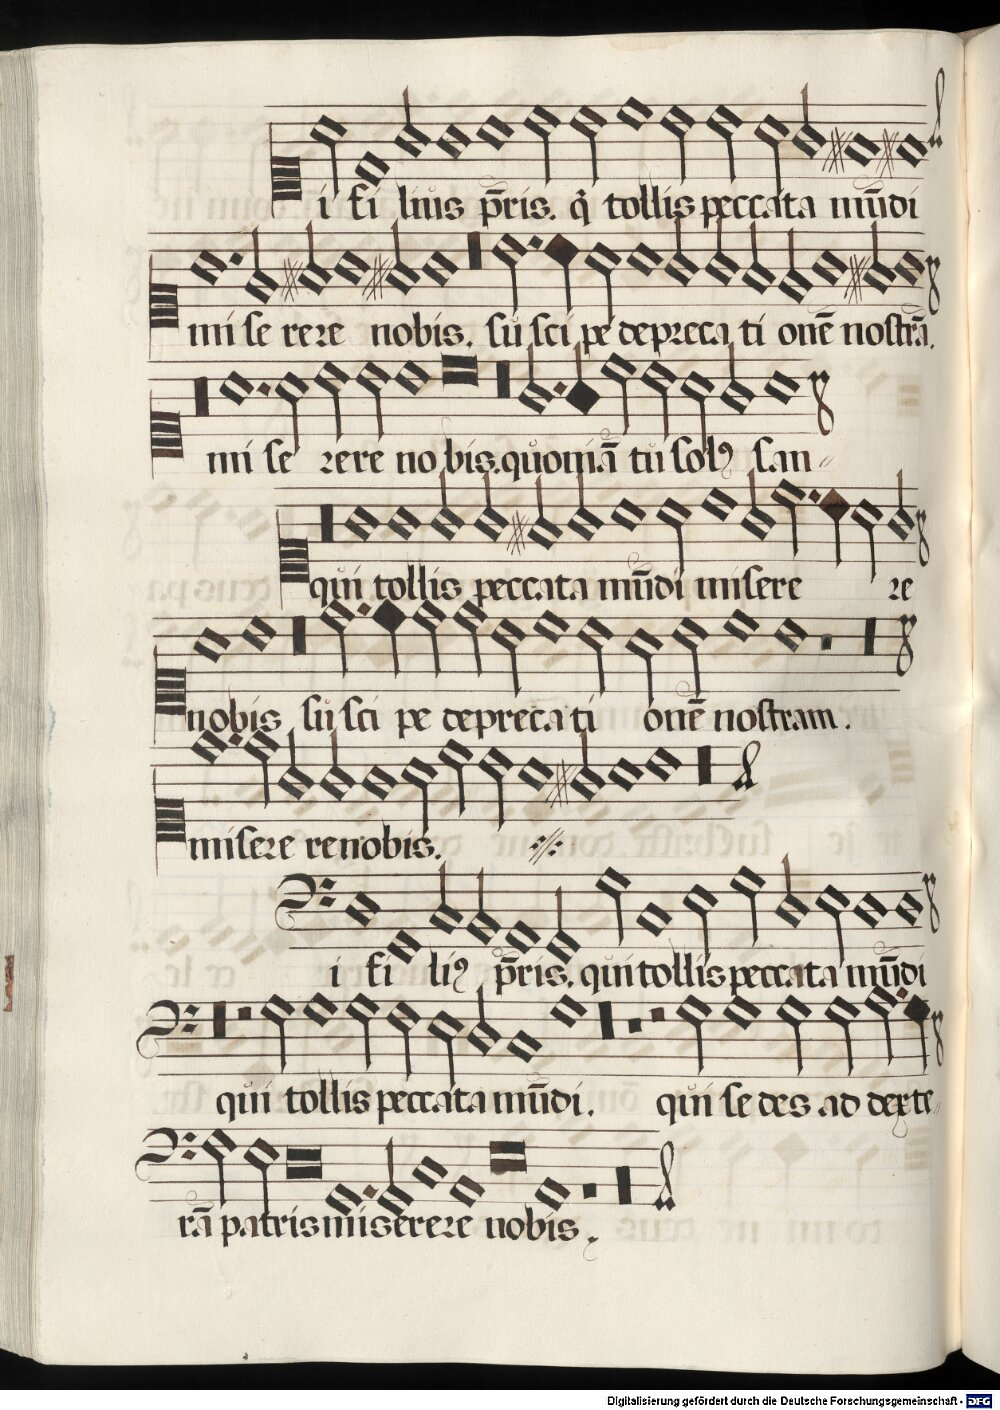 i fi lius p̄ris. q̇ tollis peccata mūdi
mi se rere nobis. su sci pe depreca ti onē nostrā.
mi se rere no bis. quoniā tu solꝰ san-
qui tollis peccata mūdi misere re
nobis su sci pe deprecati onē nostram.
misere re nobis.
i fi liꝰ p̄ris. qui tollis peccata mūdi
qui tollis peccata mūdi. qui se des ad dexte-
rā patris miserere nobis.
Digitalisierung gefördert durch die Deutsche Forschungsgemeinschaft - DFG